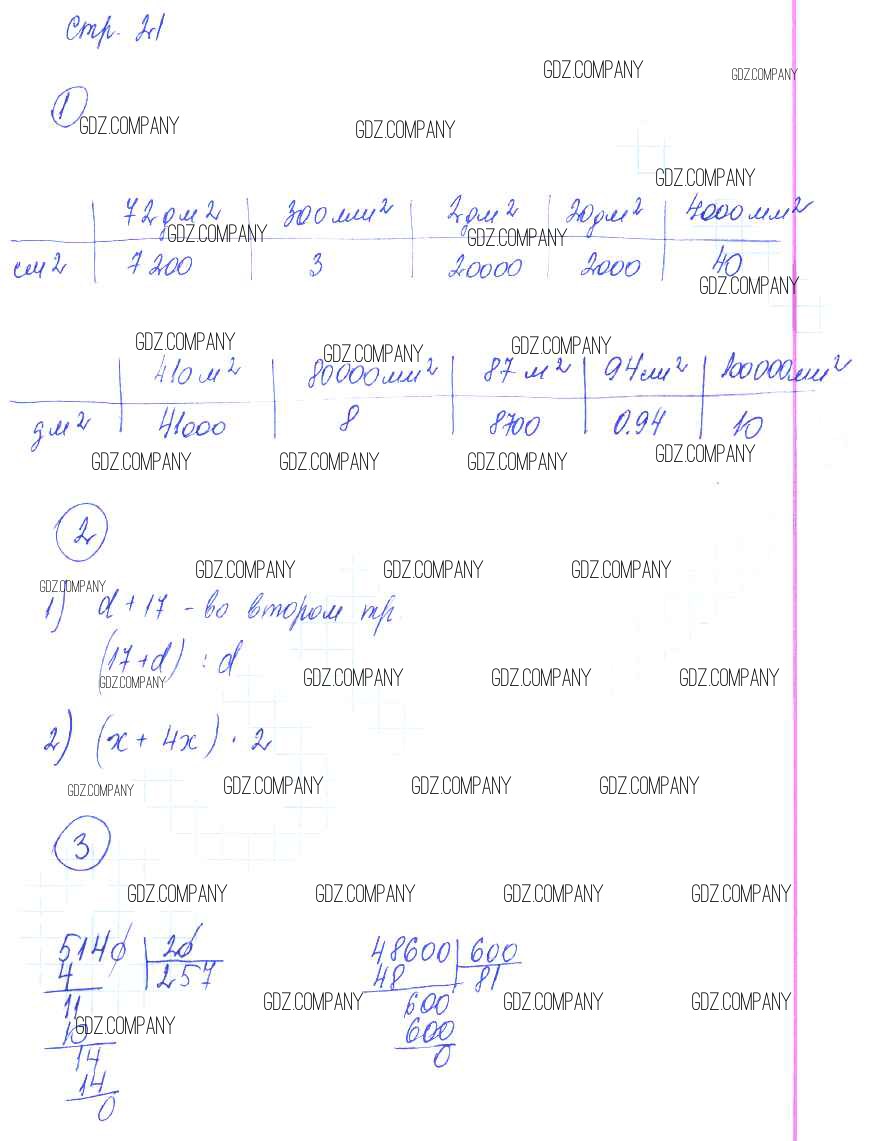 стр. 21
GDZ.COMPANY GDZ.COMPANY
1
GDZ.COMPANY GDZ.COMPANY
GDZ.COMPANY
72дм2 300мм2 2дм2 20дм2 4000мм2
GDZ.COMPANY GDZ.COMPANY
см2 7200 3 20000 2000 40
GDZ.COMPANY
GDZ.COMPANY GDZ.COMPANY GDZ.COMPANY
410м2 80000мм2 87м2 94см2 100000мм2
дм2 41000 8 8700 0.94 10
GDZ.COMPANY GDZ.COMPANY GDZ.COMPANY GDZ.COMPANY
2
GDZ.COMPANY GDZ.COMPANY GDZ.COMPANY
GDZ.COMPANY
1) d+17 - во втором тр.
(17+d) : d
GDZ.COMPANY GDZ.COMPANY GDZ.COMPANY GDZ.COMPANY
2) (x+4x) · 2
GDZ.COMPANY GDZ.COMPANY GDZ.COMPANY GDZ.COMPANY
3
GDZ.COMPANY GDZ.COMPANY GDZ.COMPANY GDZ.COMPANY
5140 20 48600 600
4 257 48 81
11 600
GDZ.COMPANY GDZ.COMPANY GDZ.COMPANY
10 600
GDZ.COMPANY
14 0
14
0